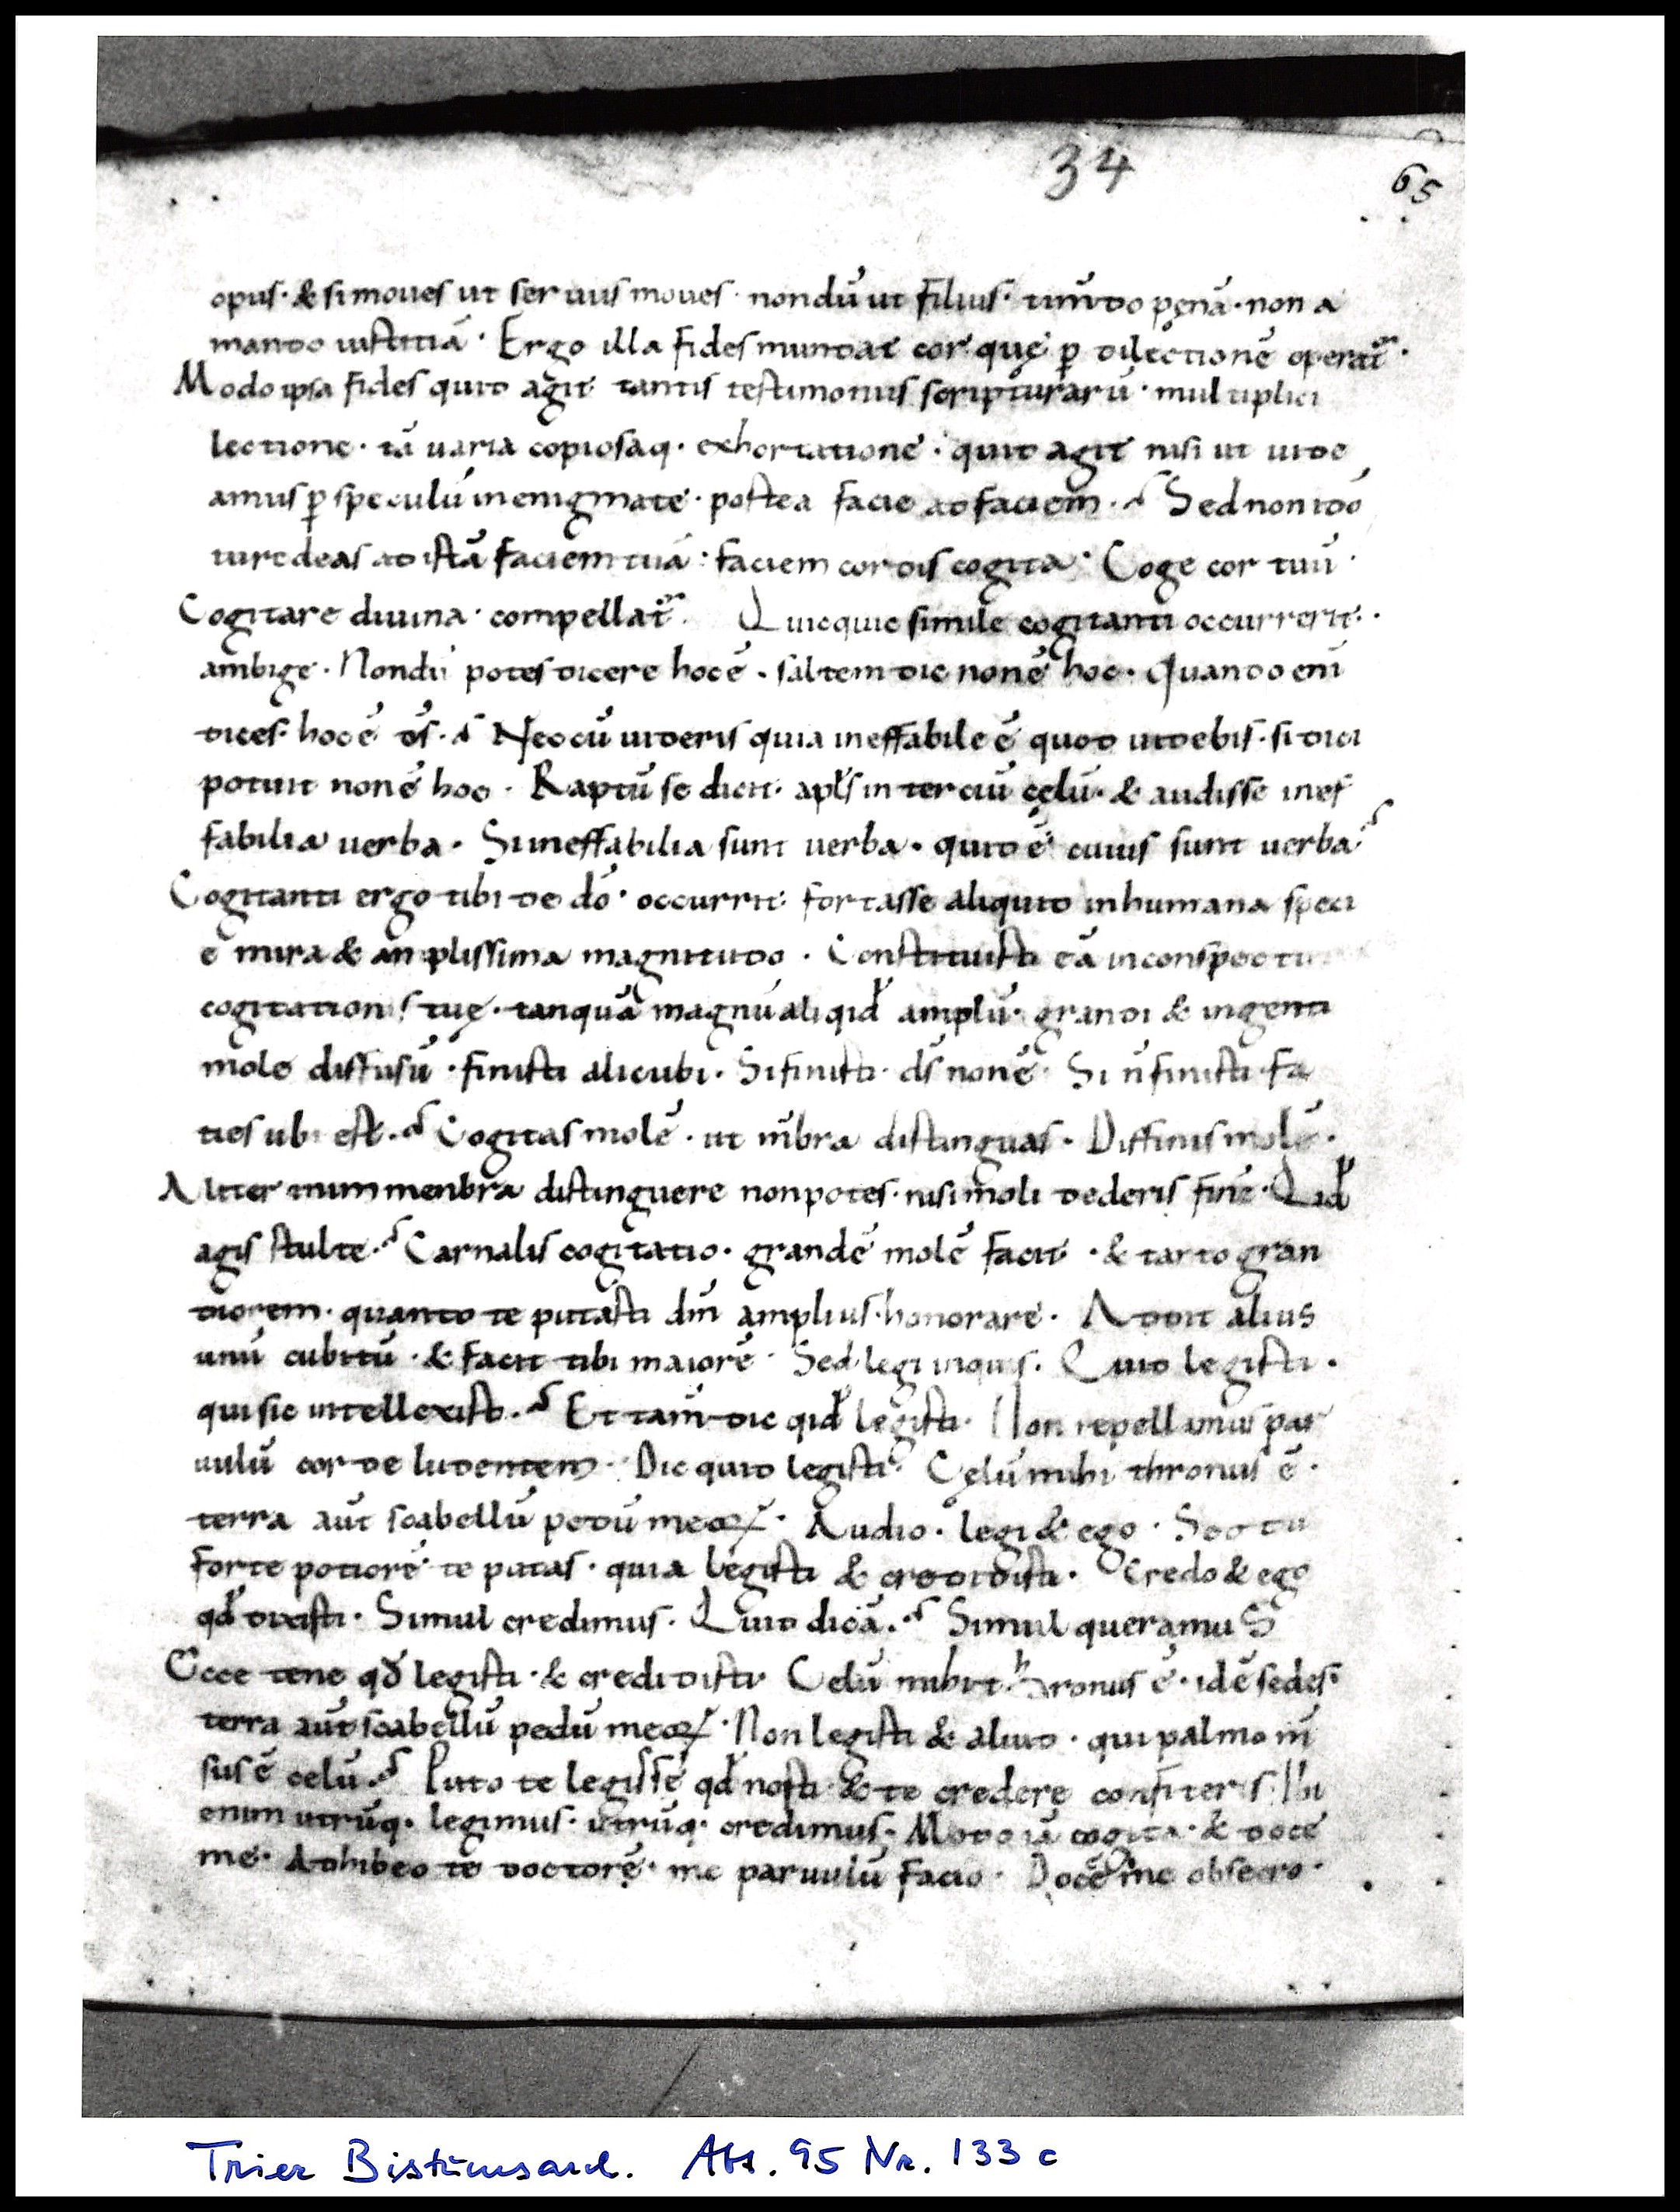 34
65
opus · & si moues ut seruus moues · nondū ut filius · tim̄do pęnā · non a
mando iustitiā · Ergo illa fides mundat cor quę p̱ dilectionē operat᷑ ·
Modo ipsa fides quid agit tantis testimoniis scripturarū · multiplici
lectione · tā uaria copiosaq · exhortatione · quid agit nisi ut uide
amus p̱ speculū in enigmate · postea facie ad faciem · Sed non ido
iuredeas ad istā faciem tuā · faciem cordis cogita · Coge cor tuū ·
Cogitare diuina · compellat᷑ Quicquid simile cogitanti occurrerit ·
ambige · Nondū potes dicere hoc ē · saltem dic non ē hoc · Quando eni
dices · hoc ē ds̄ · Nec cū uideris quia ineffabile ē quod uidebis · si dici
potuit non ē hoc · Raptū se dicit · apl̄s in terciū cęlū · & audisse inef
fabilia uerba · Si ineffabilia sunt uerba · quid ē cuius sunt uerba
Cogitanti ergo tibi de dō · occurrit · fortasse aliquid in humana speci
e mira & amplissima magnitudo · Constituisti eā in conspectu
cogitationis tuę · tanquā magnū aliqid amplū · grandi & ingenti
mole diffusū · finisti alicubi · Si finisti · ds̄ non ē · Si n̄ finisti · fa
cies ubi est · Cogitas molē · ut m̄bra distinguas · Diffinis molē ·
Aliter enim menbra distinguere non potes · nisi moli dederis finē · Qid
agis stulte · Carnalis cogitatio · grandē molē facit · & tanto gran
diorem · quanto te putasti dm̄ amplius · honorare · Addit alius
unū cubitū · & facit tibi maiorē · Sed legi inquis · Quid legisti ·
qui sic intellexisti · Et tam̄ dic qid legisti · Non repellimus par
uulū corde ludentem · Dic quid legisti Cęlū mihi thronus ē ·
terra aut scabellū pedū meoꝝ · Audio · legi & ego · Sed tu
forte potiorē te putas · quia legisti & credidisti · Credo & ego
qd̄ dixisti · Simul credimus · Quid dicā · Simul queramuS
Ecce tene qd̄ legisti · & credidisti Celū mihi thronus ē · id ē sedes ·
terra aut scabellū pedū meoꝝ · Non legisti & aliud · qui palmo m̄
sus ē celū · Puto te legisse qd̄ nosti · & te credere confiteris
enim utrūq · legimus · utrūq · credimus · Modo iā cogita · & doce
me · Adhibeo te doctorē · me paruulū facio · Doce me obsecro ·
Trier Bistumsarch. Abt. 95 Nr. 133 c